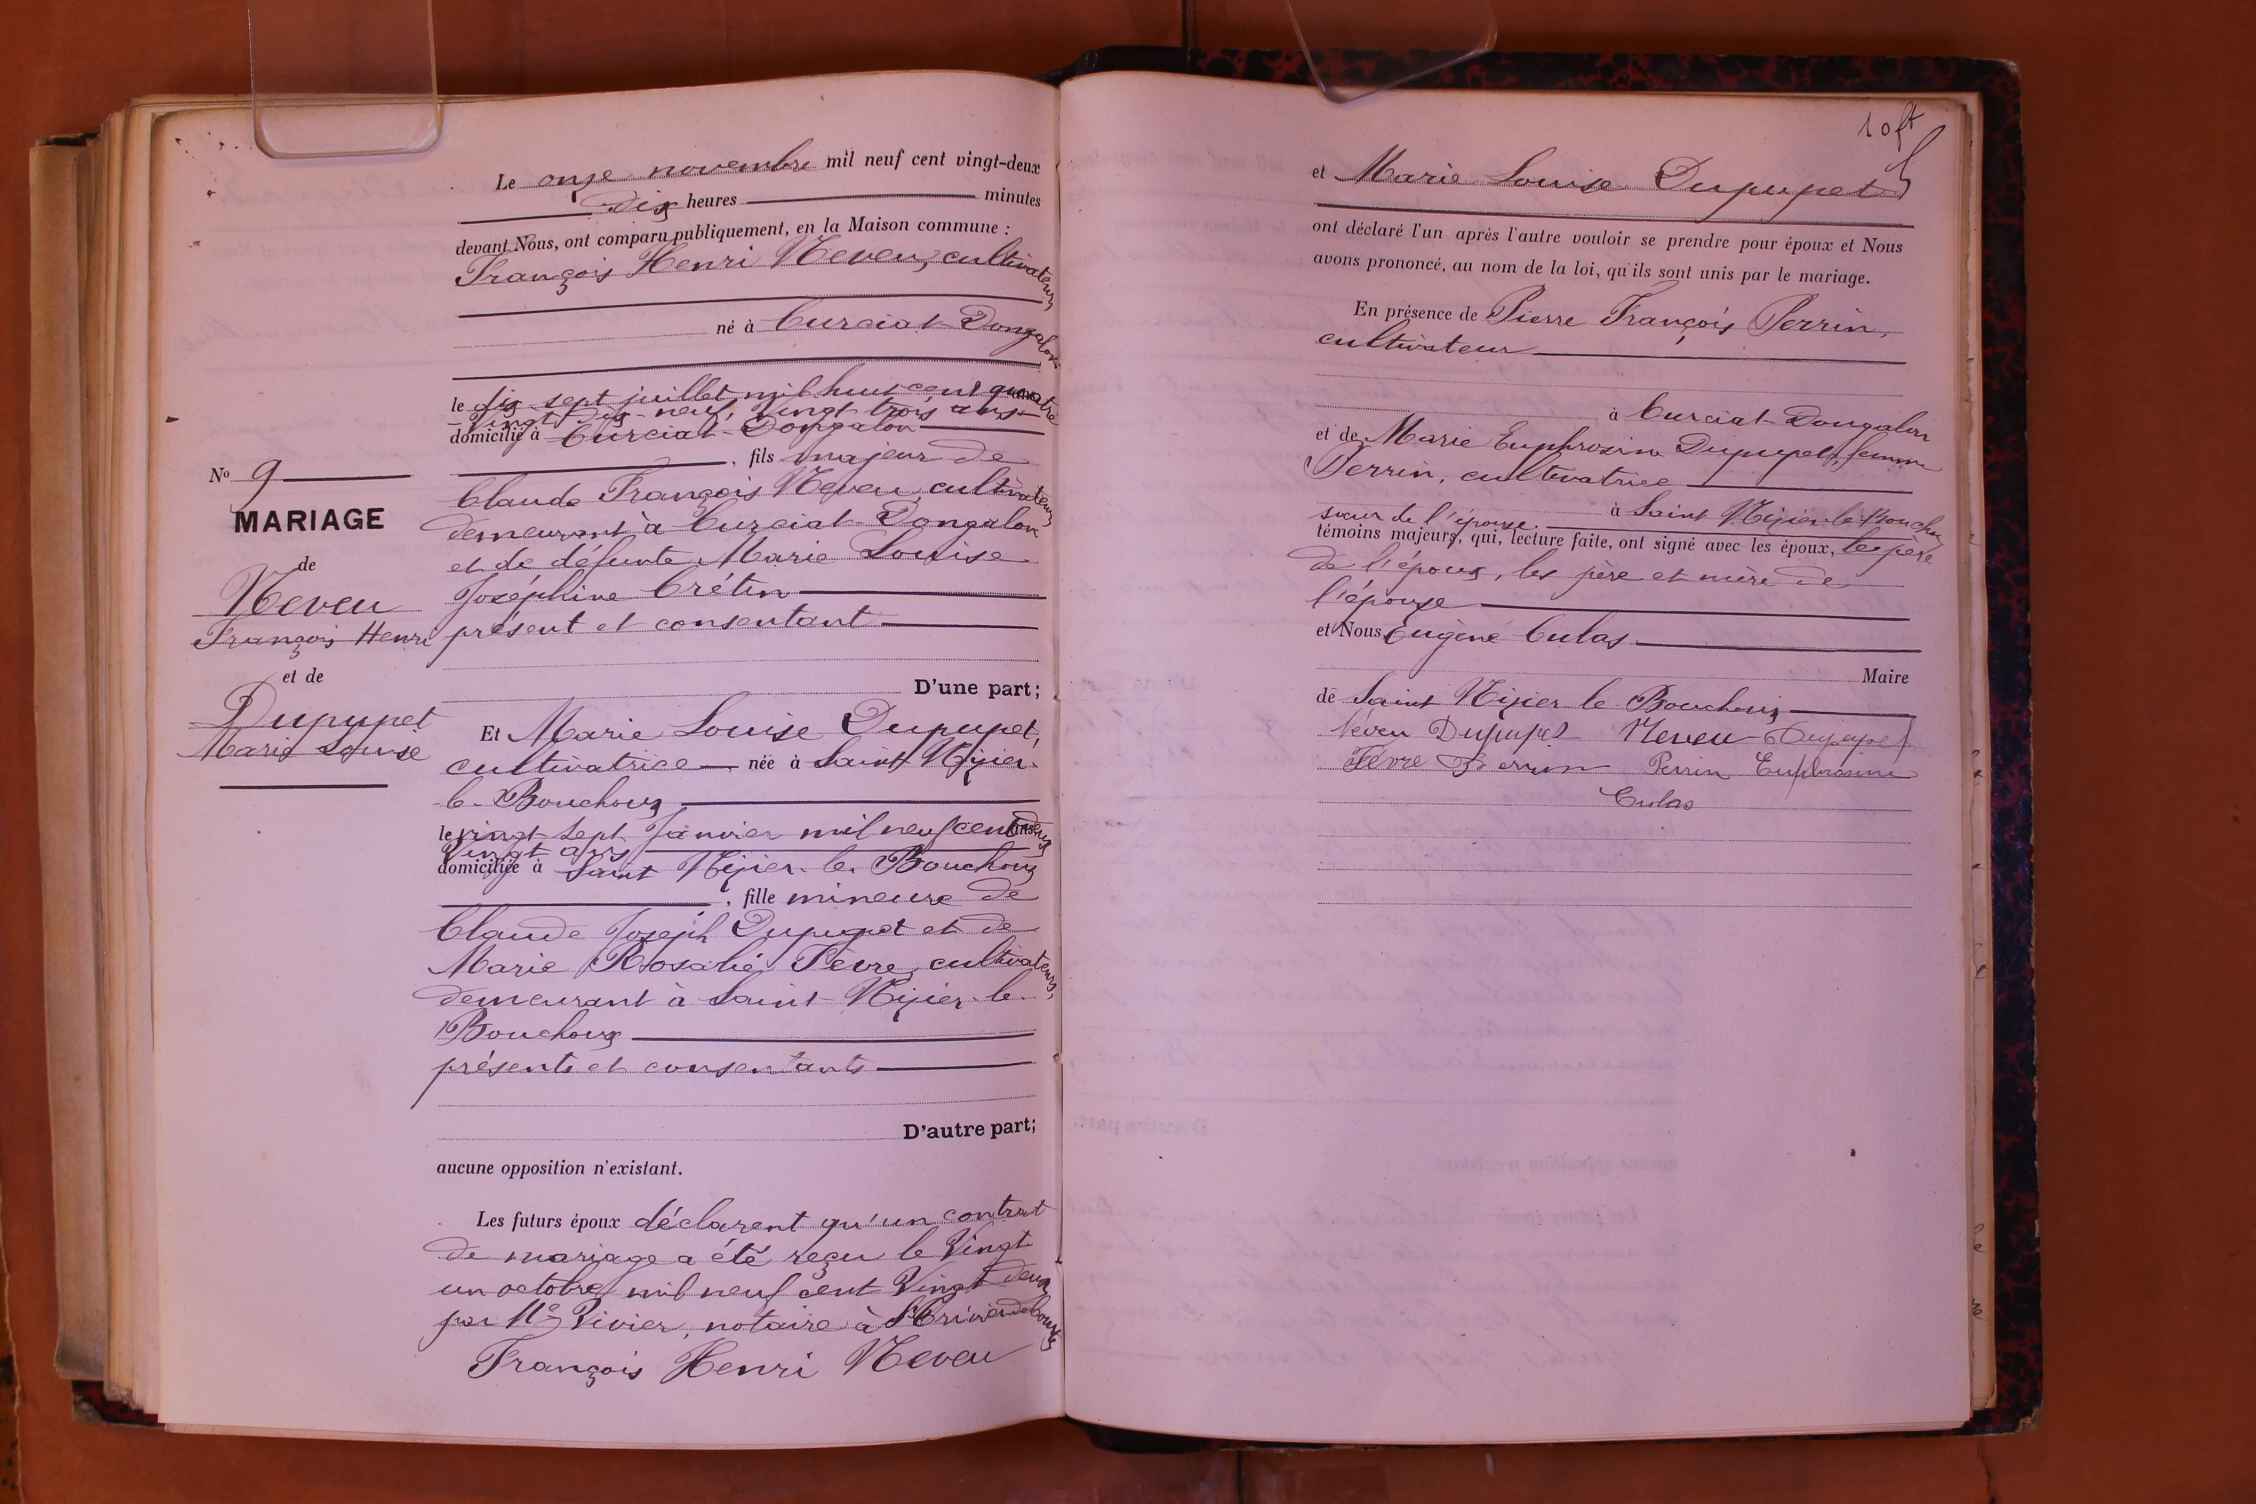 N° 9
MARIAGE
de
Neveu
François Henri
et de
Dupupet
Marie Louise
Le onze novembre mil neuf cent vingt-deux
dix heures minutes
devant Nous, ont comparu publiquement, en la Maison commune :
François Henri Neveu, cultivateur,
né à Curciat-Dongalon
le dix sept juillet mil huit cent quatre
vingt dix-neuf, vingt trois ans
domicilié à Curciat-Dongalon
, fils majeur de
Claude François Neveu, cultivateur,
demeurant à Curciat-Dongalon
et de défunte Marie Louise
Joséphine Crétin
présent et consentant
D'une part;
Et Marie Louise Dupupet,
cultivatrice née à Saint Nizier-
le-Bouchoux
le vingt-sept Janvier mil neuf cent deux
vingt ans
domiciliée à Saint Nizier-le-Bouchoux
, fille mineure de
Claude Joseph Dupupet et de
Marie Rosalie Fèvre, cultivateurs,
demeurant à Saint-Nizier-le-
Bouchoux
présents et consentants
D'autre part;
aucune opposition n'existant.
Les futurs époux déclarent qu'un contrat
de mariage a été reçu le vingt
un octobre mil neuf cent vingt deux
par Me Vivier, notaire à St Trivier de Courtes
François Henri Neveu
et Marie Louise Dupupet
ont déclaré l'un après l'autre vouloir se prendre pour époux et Nous
avons prononcé, au nom de la loi, qu'ils sont unis par le mariage.
En présence de Pierre François Perrin,
cultivateur
à Curciat-Dongalon
et de Marie Euphrosine Dupupet, femme
Perrin, cultivatrice
sœur de l'épouse. à Saint Nizier-le-Bouchoux
témoins majeurs, qui, lecture faite, ont signé avec les époux, le père
de l'époux, les père et mère de
l'épouse
et Nous Eugène Culas
Maire
de Saint Nizier-le-Bouchoux
Neveu Dupupet Neveu Dupupet
Fèvre Perrin Perrin Euphrosine
Culas